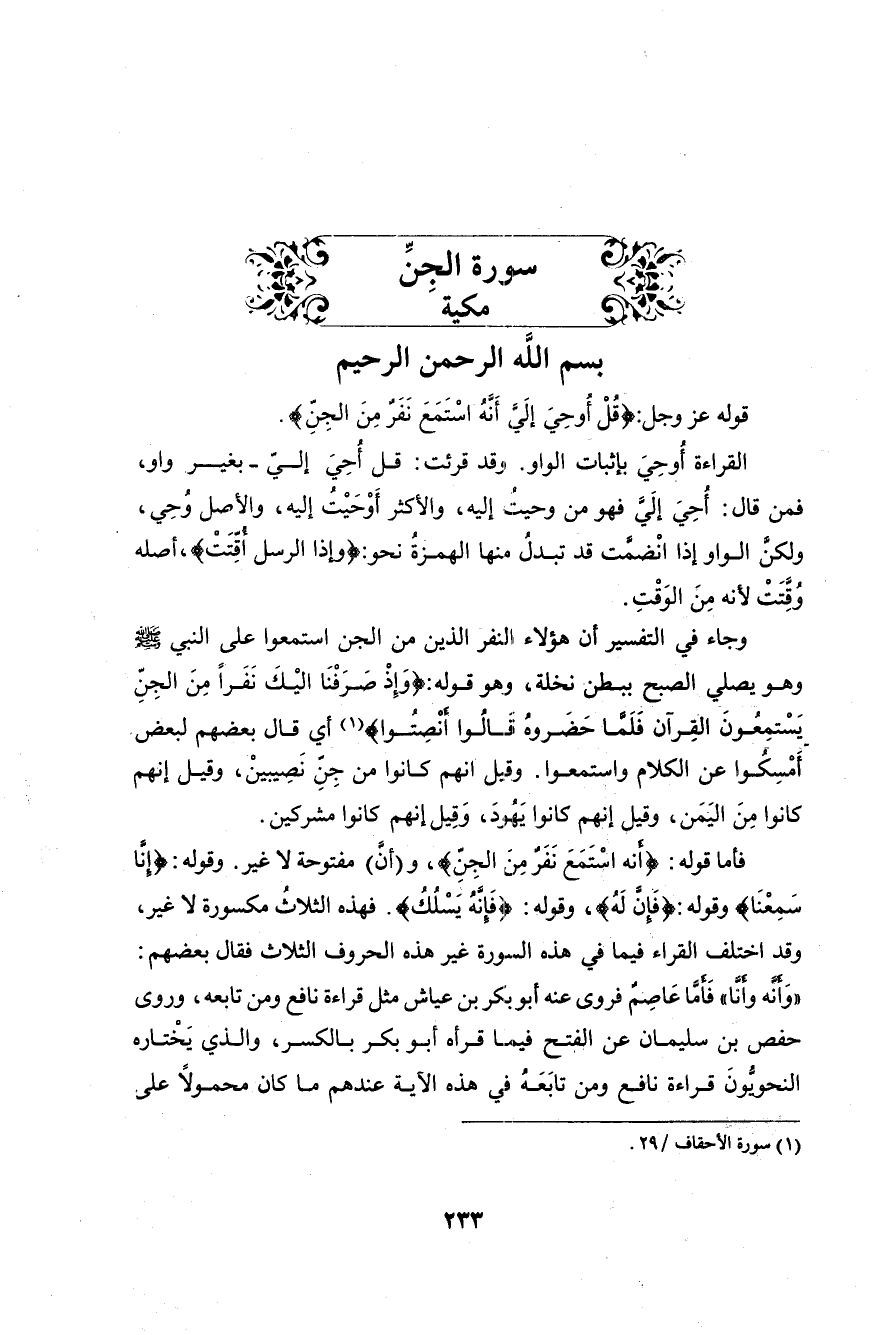 سورة الجِنِّ
مكية
بسم اللَّه الرحمن الرحيم
قوله عز وجل:﴿قُلْ أُوحِيَ إلَيَّ أَنَّهُ اسْتَمَعَ نَفَرٌ مِنَ الجِنّ﴾.
القراءة أُوحِيَ بإثبات الواو. وقد قرئت: قـل أُحِيَ إلـيّ - بغيـر واو،
فمن قال: أُحِيَ إلَيَّ فهو من وحيتُ إليه، والأكثر أَوْحَيْتُ إليه، والأصل وُحِي،
ولكنَّ الـواو إذا انْضمَّت قد تبـدلُ منها الهمـزةُ نحو:﴿وإذا الرسل أُقِّتَتْ﴾،أصله
وُقِّتَتْ لأنه مِنَ الوَقْتِ.
وجاء في التفسير أن هؤلاء النفر الذين من الجن استمعوا على النبي ﷺ
وهـو يصلي الصبح ببطن نخلة، وهو قـوله:﴿وَإِذْ صَـرَفْنَا اليْـكَ نَفَـراً مِنَ الجِنّ
يَسْتمِعُـونَ القرآن فَلَمَّـا حَضَـروهُ قَـالُـوا أَنْصِتُـوا﴾(١) أي قـال بعضهم لبعض
أَمْسِكُـوا عن الكلام واستمعـوا. وقيل انهم كـانوا من جِنّ نَصِيبينْ، وقيـل إنهم
كانوا مِنَ اليَمَن، وقيل إنهم كانوا يَهُودَ، وَقِيل إنهم كانوا مشركين.
فأما قوله: ﴿أَنه اسْتَمَعَ نَفَرٌ مِنَ الجِنّ﴾، و(أنَّ) مفتوحة لا غير. وقوله:﴿إنَّا
سَمِعْنَا﴾ وقوله:﴿فَإنَّ لَهُ﴾، وقوله: ﴿فَإنَّهُ يَسْلُكُ﴾. فهذه الثلاثُ مكسورة لا غير،
وقد اختلف القراء فيما في هذه السورة غير هذه الحروف الثلاث فقال بعضهم:
«وَأَنَّه وأَنَّا» فَأَمَّا عَاصِمٌ فروى عنه أبو بكر بن عياش مثل قراءة نافع ومن تابعه، وروى
حفص بن سليمـان عن الفتح فيمـا قـرأه أبـو بكـر بـالكسـر، والـذي يَخْتـاره
النحويُّونَ قـراءة نافـع ومن تابَعَـهُ في هذه الآيـة عندهم مـا كان محمـولاً على
(١) سورة الأحقاف /٢٩.
٢٣٣